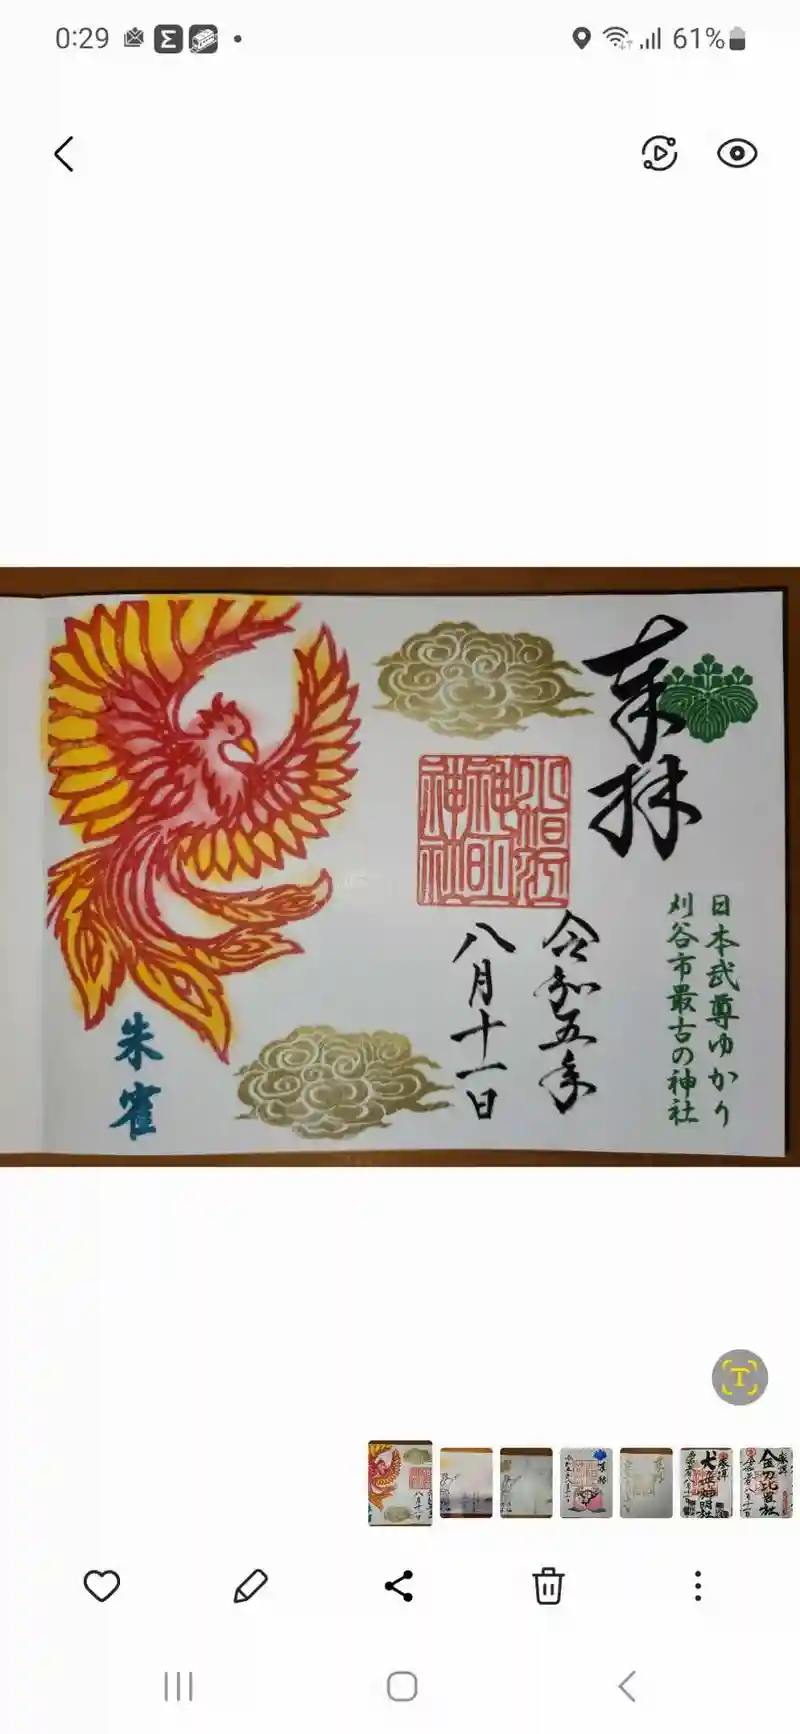 0:29
61%
奉拝
日本武尊ゆかり
刈谷市最古の神社
令和五年
八月十一日
朱雀
T